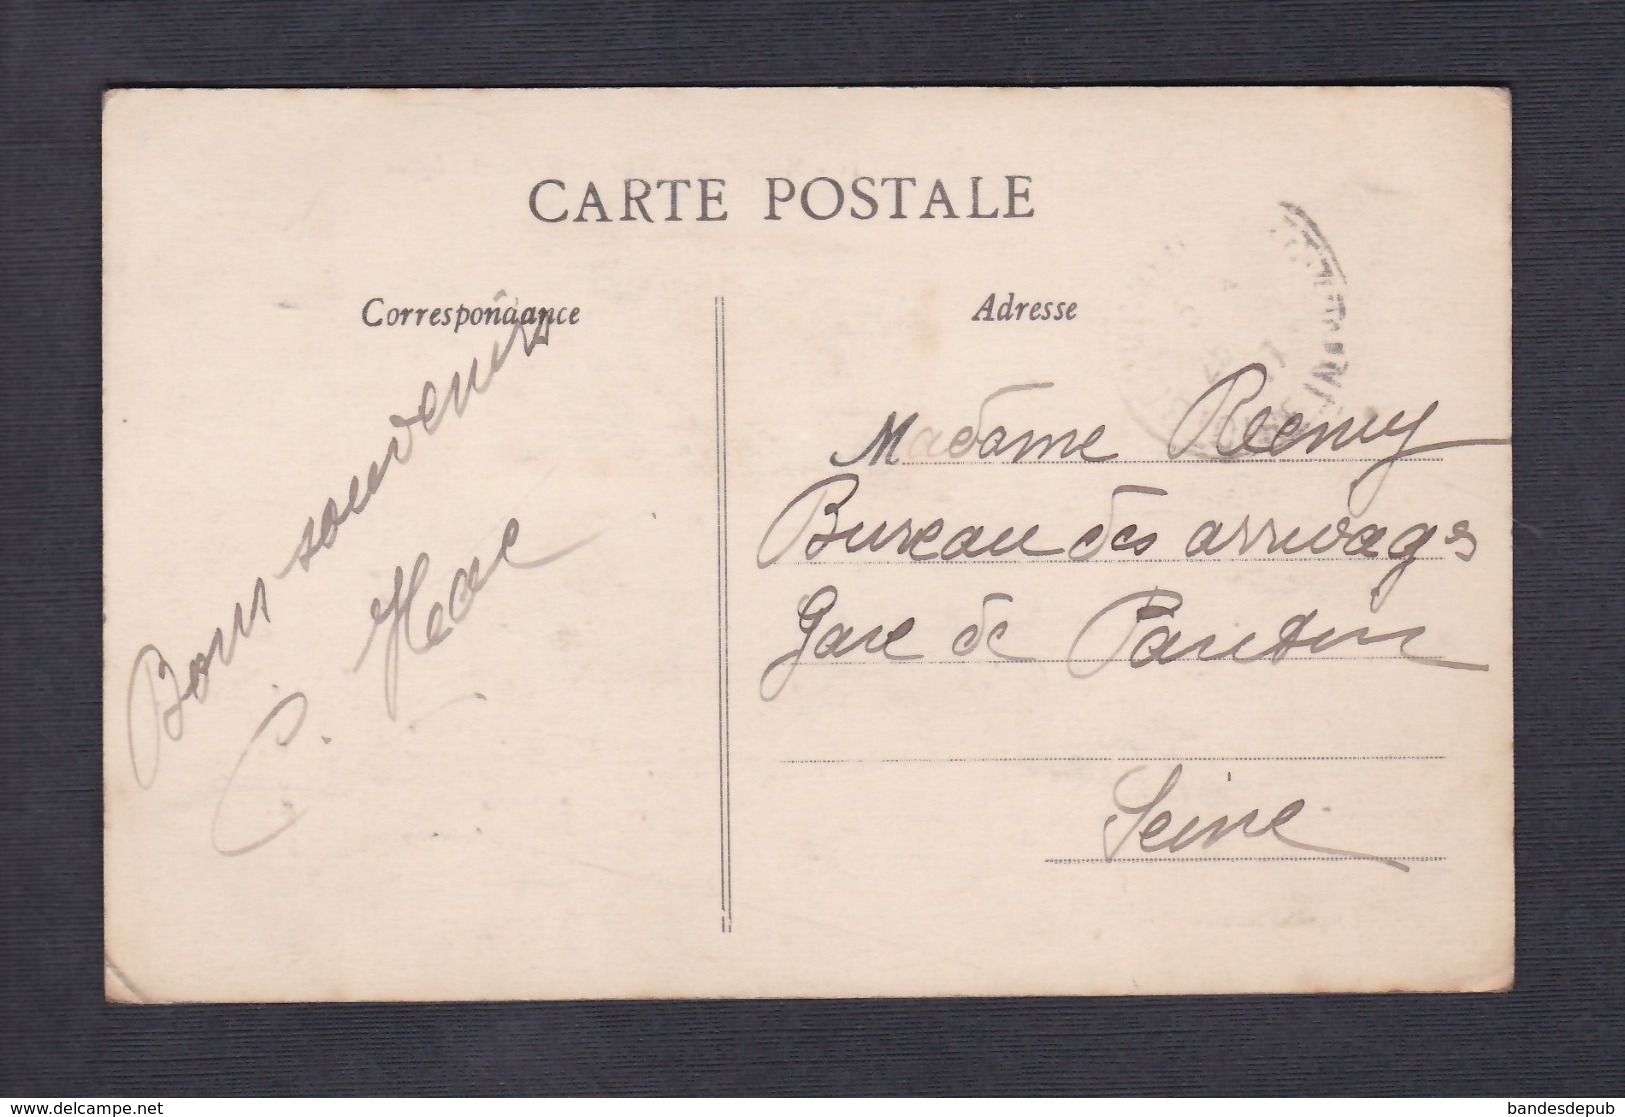 CARTE POSTALE
Correspondance
Bons souvenirs
Adresse
Madame Remy
Bureau des arrivages
Gare de Pantin
Seine
www.delcampe.net
bandesdepub